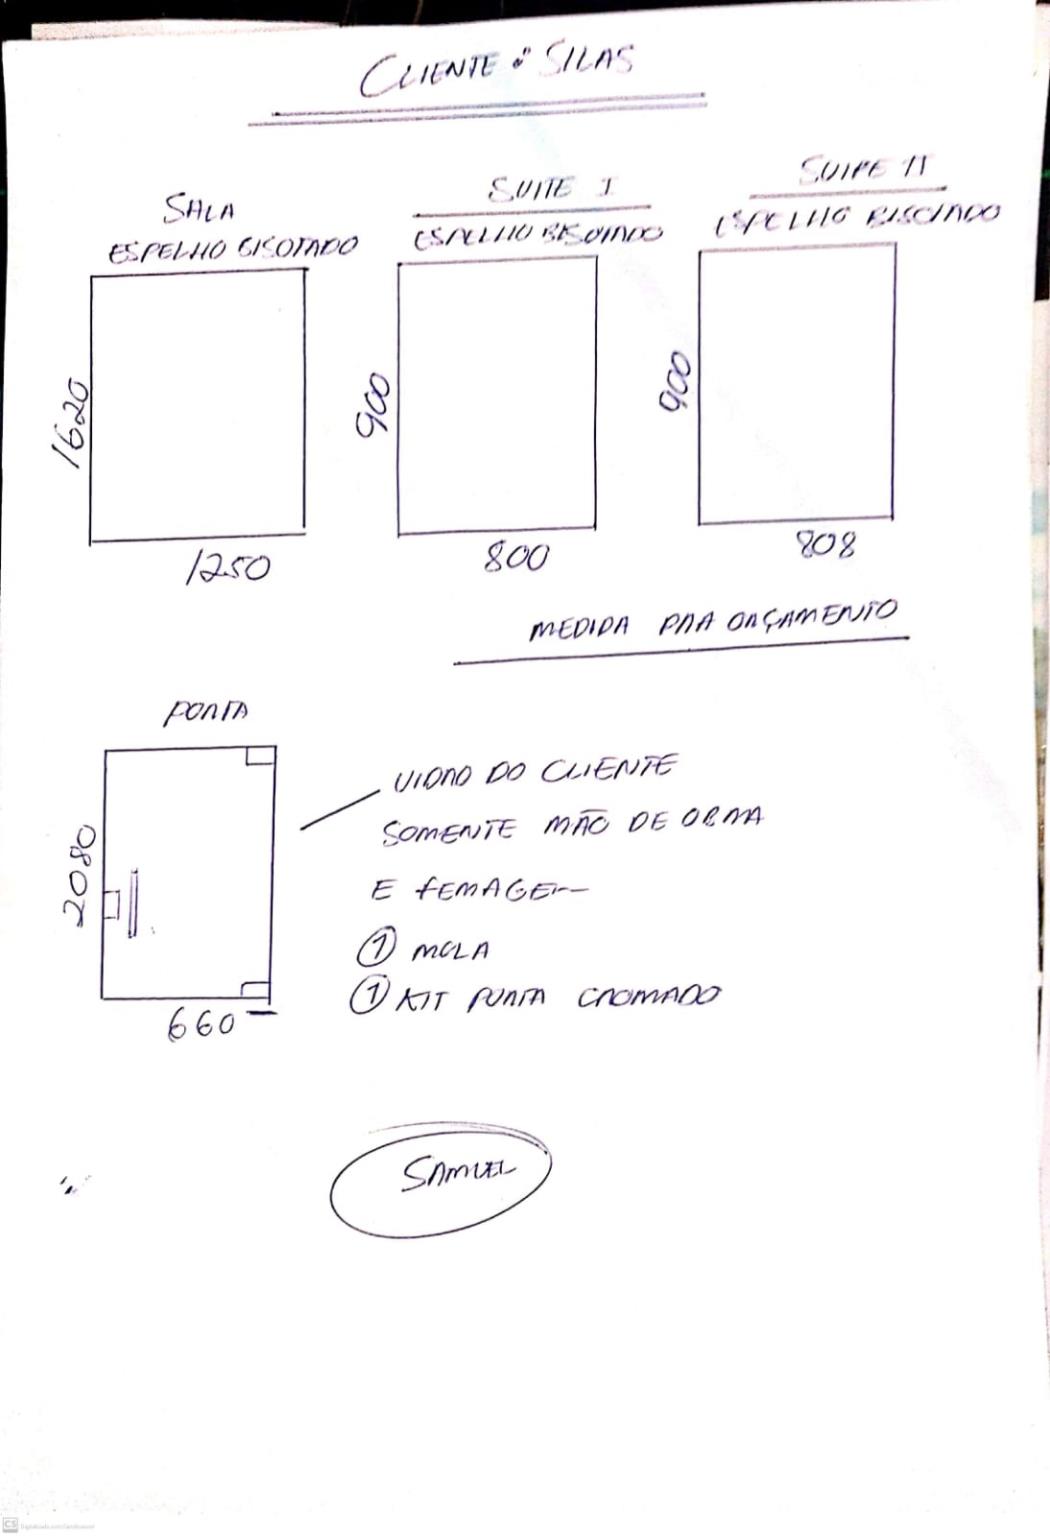 CLIENTE: SILAS
SALA
ESPELHO BISOTADO
1620
1250
SUITE I
ESPELHO BISOTADO
900
800
SUITE II
ESPELHO BISOTADO
900
808
MEDIDA PRA ORÇAMENTO
PORTA
2080
660
VIDRO DO CLIENTE
SOMENTE MÃO DE OBRA
E FERRAGEM
1 MOLA
1 KIT PORTA CROMADO
SAMUEL
CS